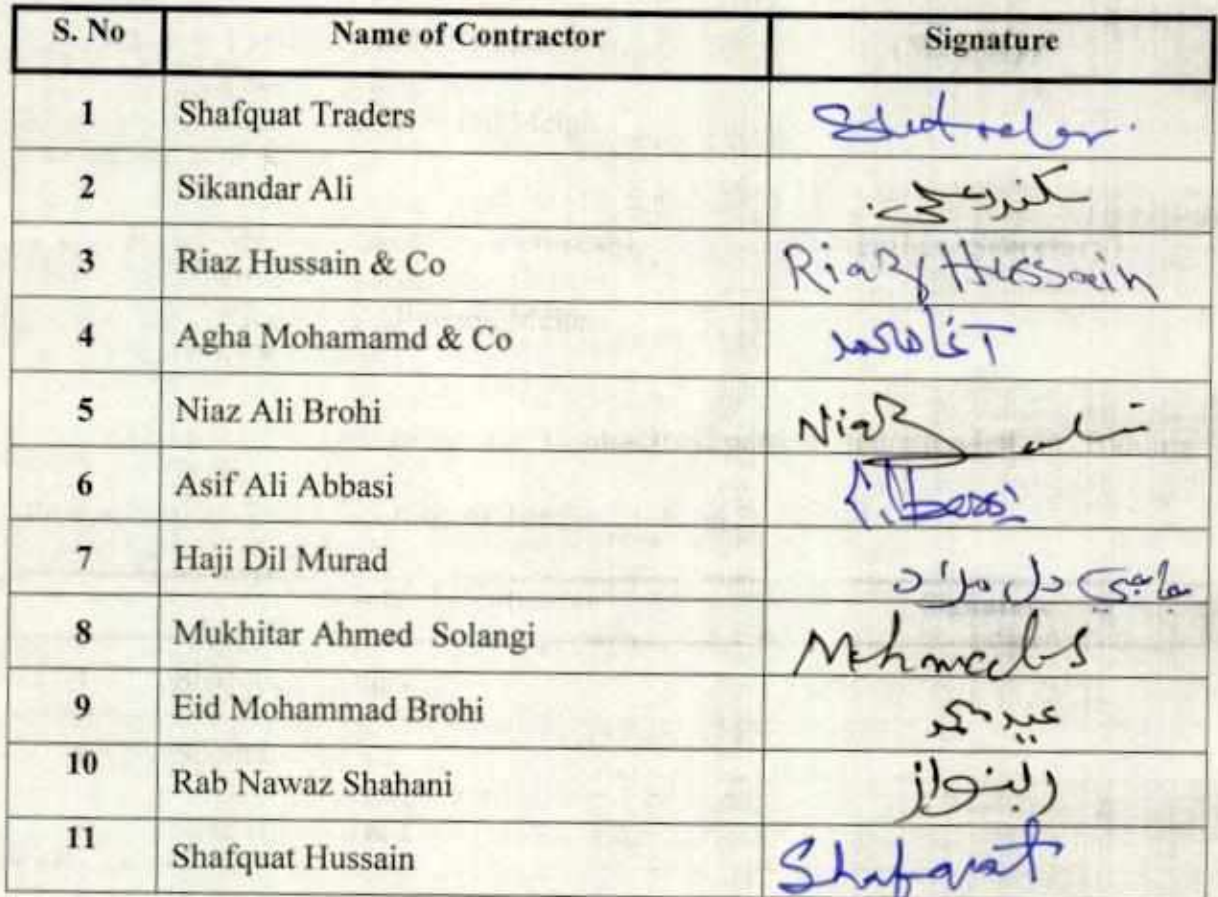 S. No Name of Contractor Signature
1 Shafquat Traders
2 Sikandar Ali سکندر علی
3 Riaz Hussain & Co Riaz Hussain
4 Agha Mohamamd & Co آغا محمد
5 Niaz Ali Brohi Niaz
6 Asif Ali Abbasi
7 Haji Dil Murad حاجي دل مراد
8 Mukhitar Ahmed Solangi
9 Eid Mohammad Brohi عيد محمد
10 Rab Nawaz Shahani ربنواز
11 Shafquat Hussain Shafqat